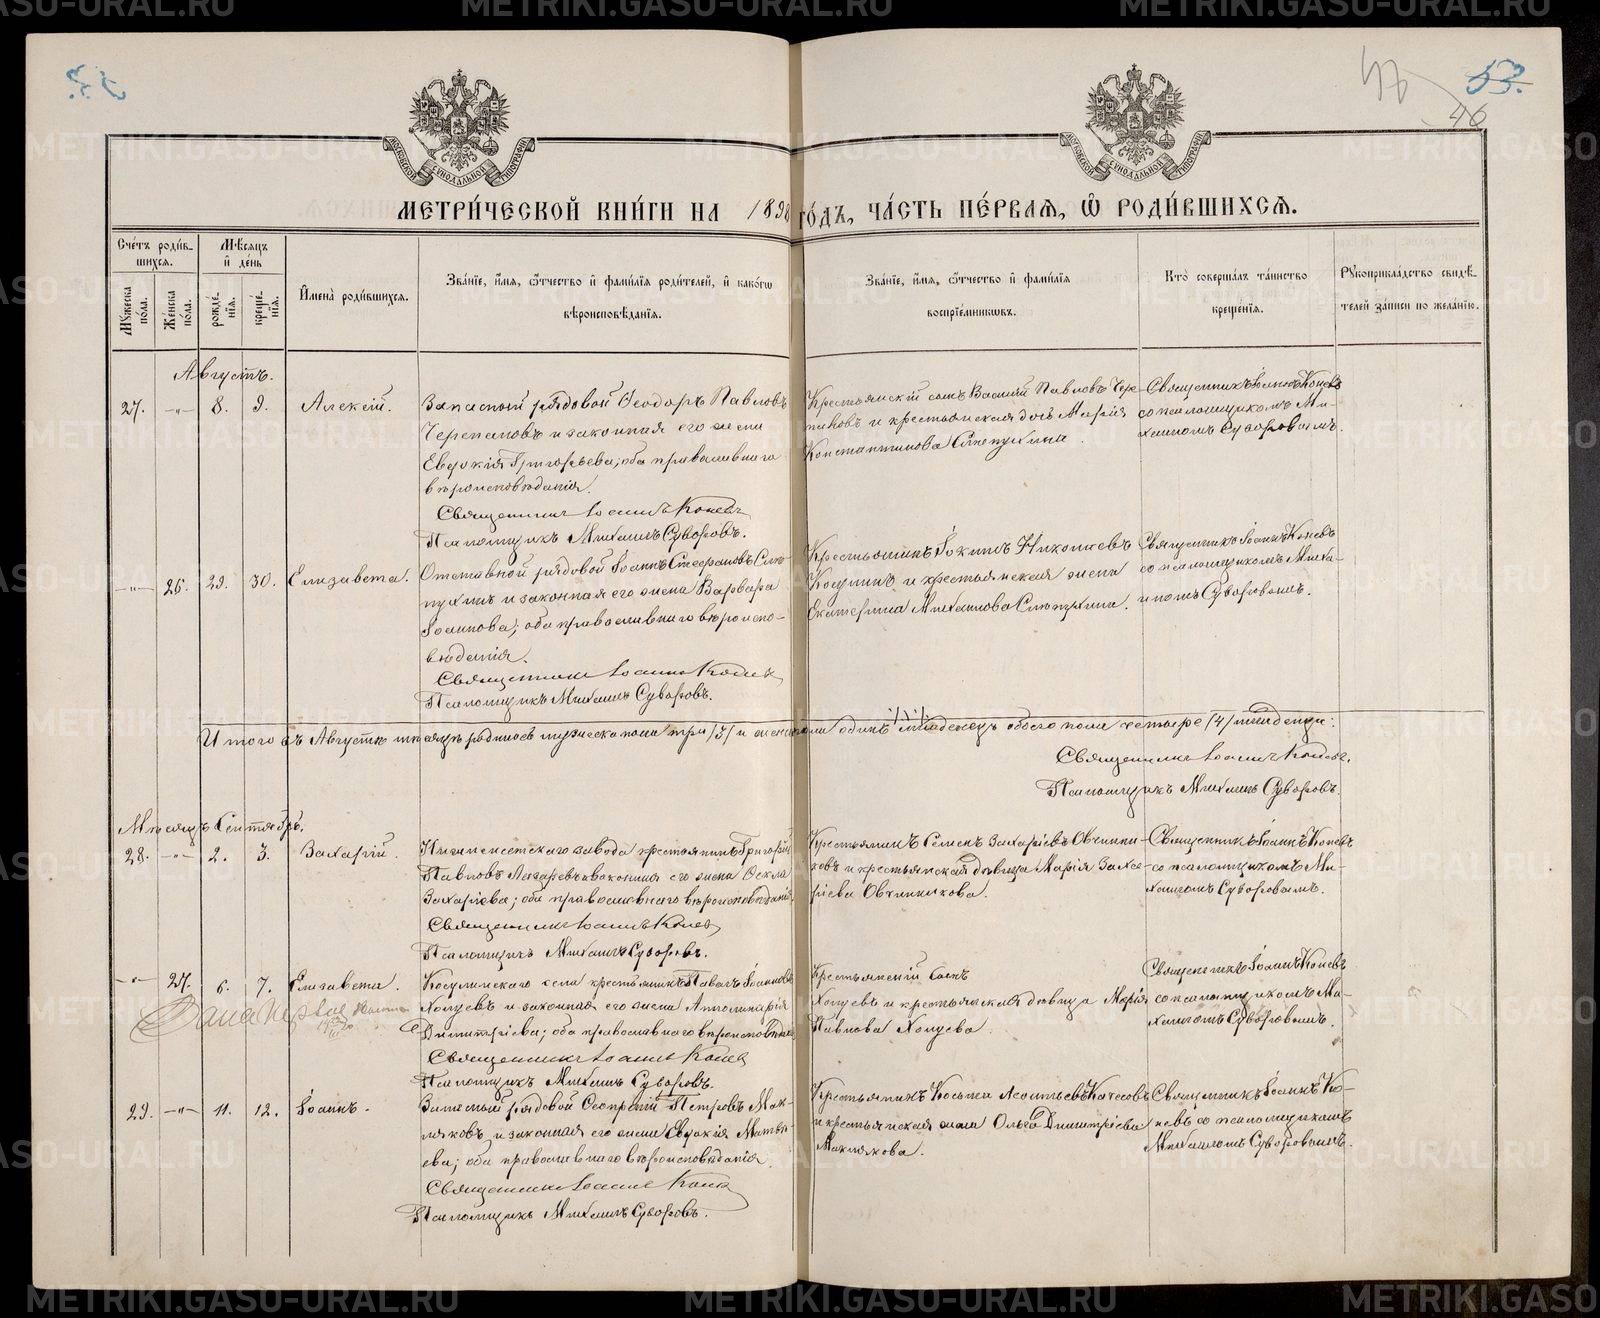 METRIKI.GASO-URAL.RU
53.
46
МОСКОВСКОЙ СУНОДАЛЬНОЙ ТИПОГРАФІИ
МЕТРИ́ЧЕСКОЙ КНИ́ГИ НА 1898 ГО́ДЪ, ЧА́СТЬ ПЕ́РВАЯ, Ѡ РОДИ́ВШИХСЯ.
Счетъ роди́вшихся.
Мѣсяцъ и день
Мужеска по́ла.
Же́нска по́ла.
рожде́нія.
креще́нія.
Имена̀ роди́вшихся.
Зва́ніе, и́мя, о́тчество и фами́лія роди́телей, и како́гѡ вѣроисповѣ́данія.
Зва́ніе, и́мя, о́тчество и фами́лія воспріе́мниковъ.
Кто̀ соверша́лъ та́инство креще́нія.
Рукоприкла́дство свидѣ́телей за́писи по жела́нію.
Августъ.
27. -„- 8. 9. Алексій.
Запасный рядовой Ѳеодоръ Павловъ
Черепановъ и законная его жена
Евдокія Григорьева; оба православнаго
вѣроисповѣданія.
Священникъ Іоаннъ Коневъ
Псаломщикъ Михаилъ Суворовъ.
Крестьянскій сынъ Василій Павловъ Чере-
пановъ и крестьянская дочь Марія
Константинова
Священникъ Іоаннъ Коневъ
со псаломщикомъ Ми-
хаиломъ Суворовымъ.
-„- 26. 29. 30. Елизавета.
Отставной рядовой Іоаннъ Стефановъ Слю-
пухинъ и законная его жена Варвара
Іоаннова; оба православнаго вѣроиспо-
вѣданія.
Священникъ Іоаннъ Коневъ
Псаломщикъ Михаилъ Суворовъ.
Крестьянинъ Іакимъ
и крестьянская жена
Екатерина Михаилова Слюпухина.
Священникъ Іоаннъ Коневъ
со псаломщикомъ Миха-
иломъ Суворовымъ.
Итого въ Августѣ мѣсяцѣ родилось мужеска пола три /3/ и женска одинъ /1/ младенецъ обоего пола четыре /4/ младенца.
Священникъ Іоаннъ Коневъ.
Псаломщикъ Михаилъ Суворовъ.
Мѣсяцъ Сентябрь.
28. -„- 2. 3. Захарій.
завода крестьянинъ Григорій
Павловъ Лазаревъ и законная его жена Ѳекла
Захаріева; оба православнаго вѣроисповѣданія.
Священникъ Іоаннъ Коневъ
Псаломщикъ Михаилъ Суворовъ.
Крестьянинъ Семенъ Захаріевъ Овчинни-
ковъ и крестьянская дѣвица Марія Заха-
ріева Овчинникова.
Священникъ Іоаннъ Коневъ
со псаломщикомъ Ми-
хаиломъ Суворовымъ.
-„- 27. 6. 7. Елизавета.
Косулинскаго села крестьянинъ Павелъ Іоанновъ
Хопуевъ и законная его жена Апполинарія
Димитріева; оба православнаго вѣроисповѣданія
Священникъ Іоаннъ Коневъ
Псаломщикъ Михаилъ Суворовъ.
Крестьянскій сынъ
Хопуевъ и крестьянская дѣвица Марія
Павлова Хопуева.
Священникъ Іоаннъ Коневъ
со псаломщикомъ Ми-
хаиломъ Суворовымъ.
29. -„- 11. 12. Іоаннъ.
Запасный рядовой Петровъ Мак-
ляковъ и законная его жена Евдокія Матвѣ-
ева; оба православнаго вѣроисповѣданія.
Священникъ Іоаннъ Коневъ
Псаломщикъ Михаилъ Суворовъ.
Крестьянинъ Косьма Леонтьевъ
и крестьянская жена Ольга Димитріева
Маклякова.
Священникъ Іоаннъ Ко-
невъ со псаломщикомъ
Михаиломъ Суворовымъ.